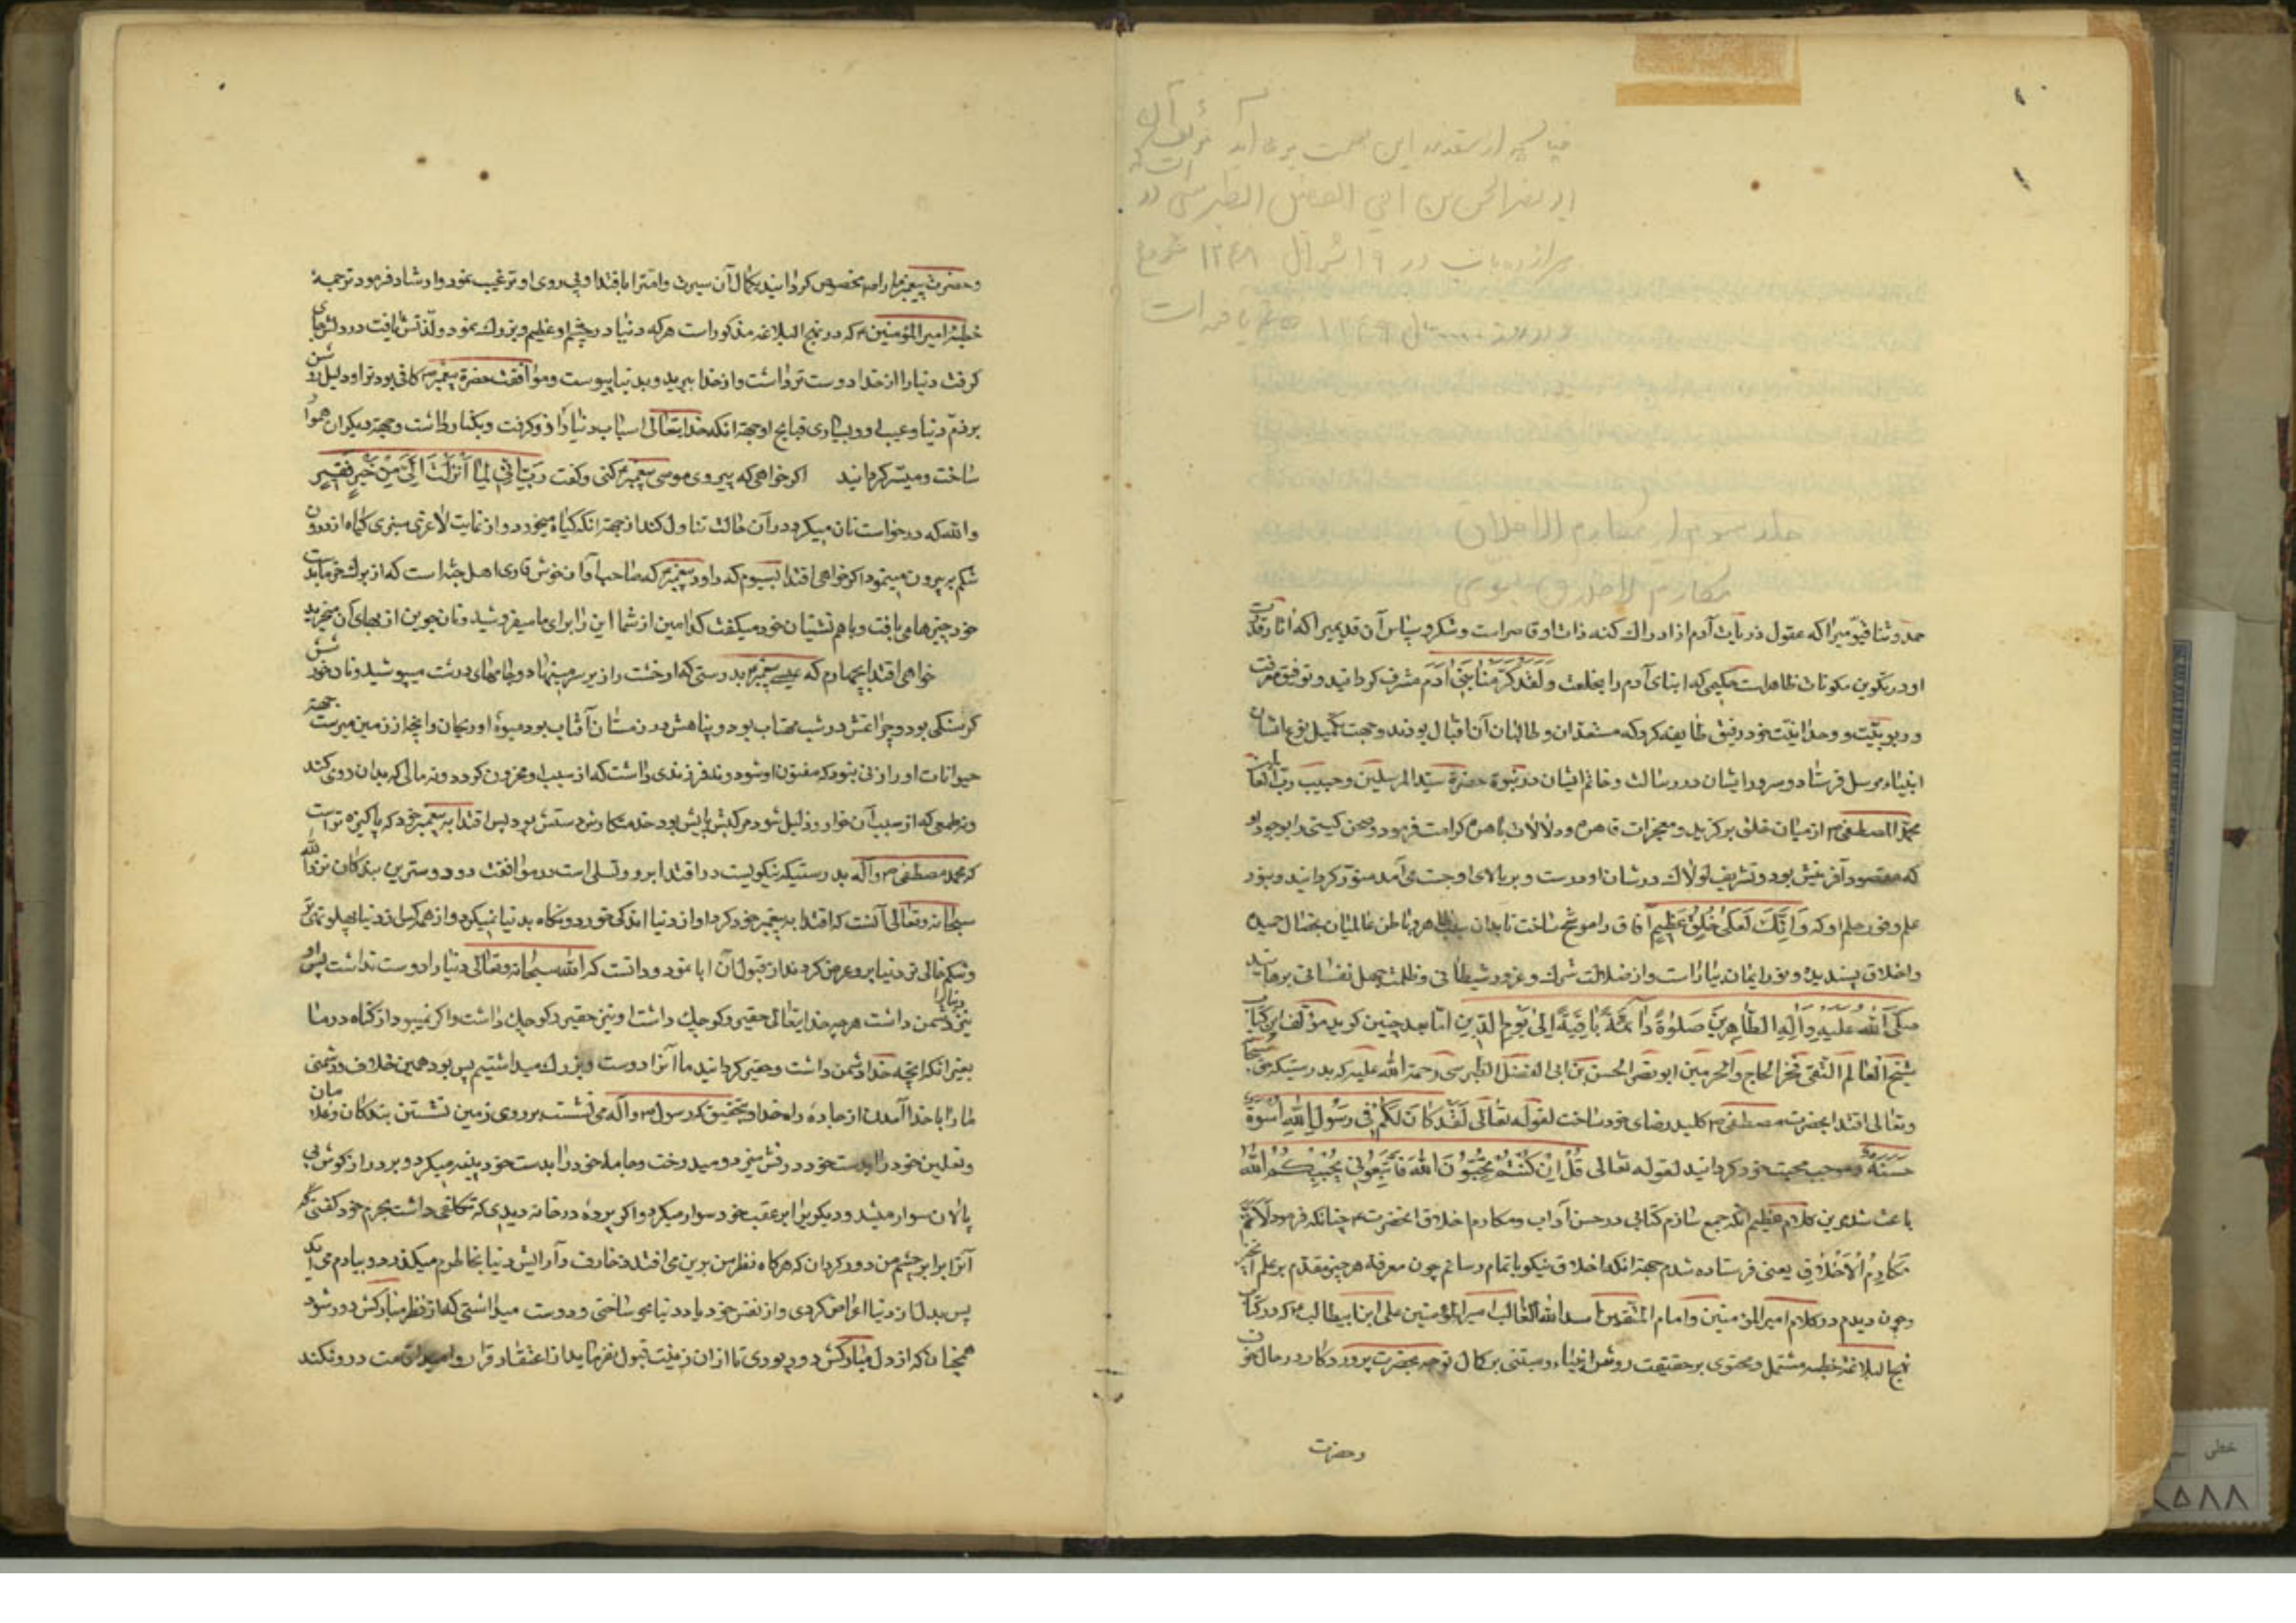 جلد سوم از مکارم الاخلاق
مکارم الاخلاق طبرسی
حمد و ثنا قیّومیرا که عقول ذریات آدم از ادراک کنه ذات او قاصر است و شکر و سپاس آن قدیمیرا که آثار قدرت
او در تکوین مکونات ظاهر است حکیمی که ابنای آدم را بخلعت وَلَقَدْ کَرَّمْنَا بَنِی آدَمَ مشرف کردانید و توفیق معرفت
و ربوبیّت و وحدانیّت خود رفیق طایفه کرد که مستعدان و طالبان آن اقبال بودند و جهت تکمیل نوع انسان
انبیاء مرسل فرستاد و سرور ایشان در رسالت و خاتم ایشان در نبوة حضرة سیّد المرسلین و حبیب ربّ العالمین
محمّد المصطفی ص از میان خلق برکزید و معجزات قاهره و دلالات باهره کرامت فرمود و صحن کیتی را بوجود او
که مقصود آفرینش بود و تشریف لولاک در شان اوست و بر بالای او چست می آمد منوّر کردانید و بنور
علم و فور حلم او که وَاِنَّکَ لَعَلی خُلُقٍ عَظِیمٍ آفاق را موشّح ساخت تا بدان سبب ظاهر و باطن عالمیان بخصال حمیده
و اخلاق پسندیده و نور ایمان بیاراست و از ضلالت شرک و غرور شیطانی و ظلمت جهل نفسانی برهانید
صَلَّی اللهُ عَلَیْهِ وَآلِهِ الطَّاهِرِینَ صَلوٰةً دَائِمَةً بَاقِیَةً اِلیٰ یَوْمِ الدِّینِ امّا بعد چنین کوید مؤلف این کتاب
شیخ العالم التقی فخر الحاج والحرمین ابو نصر الحسن بن ابی الفضل الطبرسی رحمة الله علیه که بدرستیکه حق سبحانه
وتعالی اقتدا بحضرت مصطفی ص کلید رضای خود ساخت لقوله تعالی لَقَدْ کَانَ لَکُمْ فِی رَسُولِ اللهِ اُسْوَةٌ
حَسَنَةٌ و موجب محبت خود کردانید لقوله تعالی قُلْ اِنْ کُنْتُمْ تُحِبُّونَ اللهَ فَاتَّبِعُونِی یُحْبِبْکُمُ اللهُ
باعث شد این کلام عظیم آنکه جمع سازم کتابی در حسن آداب و مکارم اخلاق آنحضرت ص چنانکه فرمود لِاُتَمِّمَ
مَکَارِمَ الْاَخْلَاقِ یعنی فرستاده شدم جهة آنکه اخلاق نیکو باتمام رسانم چون معرفة هر چیز مقدّم بر علم
و چون دیدم در کلام امیر المؤمنین و امام المتّقین اسد الله الغالب امیر المؤمنین علی ابن ابیطالب ع که در کتاب
نهج البلاغة خطبه مشتمل و محتوی بر حقیقت روش انبیاء و مبتنی بر کمال توجه بحضرت پروردکار در حال
و حضرت
و حضرت پیغمبر ما را ص مخصوص کردانید بکمال آن سیرت و امّت را باقتدا و پی روی او ترغیب نمود و ارشاد فرمود ترجمهٔ
خطبهٔ امیر المؤمنین ع که در نهج البلاغه مذکور است هر که دنیا در چشم او عظیم و بزرک نمود و لذّتش یافت در دلش جای
کرفت دنیا را از خدا دوست تر داشت و از خدا ببرید و بدنیا پیوست و موافقت حضرة پیغمبر ص کافی بود ترا و دلیل روشن
بر ذمّ دنیا و عیب او و بسیاری قبایح او جهة آنکه خدایتعالی اسباب دنیا را ازو کرفت و یکبار و جهة دیکران هموار
ساخت و میسّر کردانید اکر خواهی که پیروی موسی پیغمبر ع کنی و کفت رَبِّ اِنِّی لِمَا اَنْزَلْتَ اِلَیَّ مِنْ خَیْرٍ فَقِیرٌ
والله که درخواست نان میکرد در آن حالت تناول کند از جهة آنکه کیاه میخورد و از غایت لاغری سبزی کیاه از درون
شکم بر بیرون مینمود اکر خواهی اقتدا بسیوم که داود پیغمبر ع که صاحب آواز خوش قاری اهل جنّه است که از برک خرما بدست
خود چیزها می بافت و با هم نشینان خود میکفت کدامین از شما این را برای ما میفروشید و نان جوین از بهای آن میخرید
خواهی اقتدا بچهارم که عیسی پیغمبر ع بدرستی که او خشت را زیر سر مینهاد و جامهای درشت میپوشید و نان خورشش
کرسنکی بود و چراغش در شب مهتاب بود و پناهش در زمستان آفتاب بود میوهٔ او ریحان و آنچه از زمین میرست جهة
حیوانات او را زنی نبود که مفتون او شود و نه فرزندی داشت که از سبب او محزون کردد و نه مالی که بدان روی کند
و نه طمعی که از سبب آن خوار و ذلیل شود مرکبش پایش بود خدمتکارش دستش بود پس اقتدا به پیغمبر خود که پاکیزه تر است
که محمد مصطفی ص و آله بدرستیکه نیکوییست در اقتدا برو و تسلی است در موافقت درو دوسترین بندکان نزد الله
سبحانه وتعالی آنست که اقتدا به پیغمبر خود کرد او از دنیا اندکی خورد و نکاه بدنیا نمیکرد و از همه کس از دنیا پهلو تهی تر
و شکم خالی تر دنیا برو عرض کردند از قبول آن ابا نمود و دانست که الله سبحانه وتعالی دنیا را دوست نداشت پس او
نیز دنیا را دشمن داشت هرچه خدایتعالی حقیر و کوچک داشت او نیز حقیر و کوچک داشت و اکر نمیبود از کناه در ما
بغیر آنکه آنچه خدا دشمن داشت و حقیر کردانید ما آنرا دوست و بزرک میداشتیم بس بود همین خلاف و دشمنی
ما را با خدا آمدن از جادهٔ راه خدا و بتحقیق که رسول ص و آله می نشست بر روی زمین نشستن بندکان و غلامان
و نعلین خود را بدست خود درفش میزد و میدوخت و جامهٔ خود را بدست خود پینه میکرد و بر دراز کوش بی
پالان سوار میشد و دیکریرا بر عقب خود سوار میکرد و اکر پردهٔ در خانه دیدی که تکلفی داشت بحرم خود کفتی که
آنرا برابر چشم من دور کردان که هر کاه نظر من برین می افتد زخارف و آرایش دنیا بخاطرم میکذرد و بیادم می آید
پس بدل از دنیا اعراض کردی و از نفس خود یاد دنیا محو ساختی و دوست میداشتی که از نظر مبارکش دور شود
همچنان که از دل مبارکش دور بودی تا از آن زینت قبول نفرماید از اعتقاد قرار و امید اقامت درو نکند
خطی